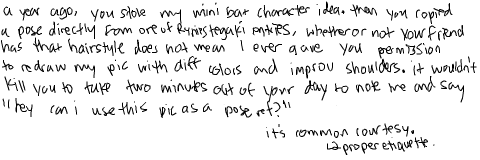 a year ago, you stole my mini bat character idea. then you copied
a pose directly from one of Ryinstegaki entries, whether or not your friend
has that hairstyle does not mean I ever gave you permission
to redraw my pic with diff colors and improv shoulders. it wouldn't
kill you to take two minutes out of your day to note me and say
"hey can i use this pic as a pose ref?"
it's common courtesy.
↳ proper etiquette.